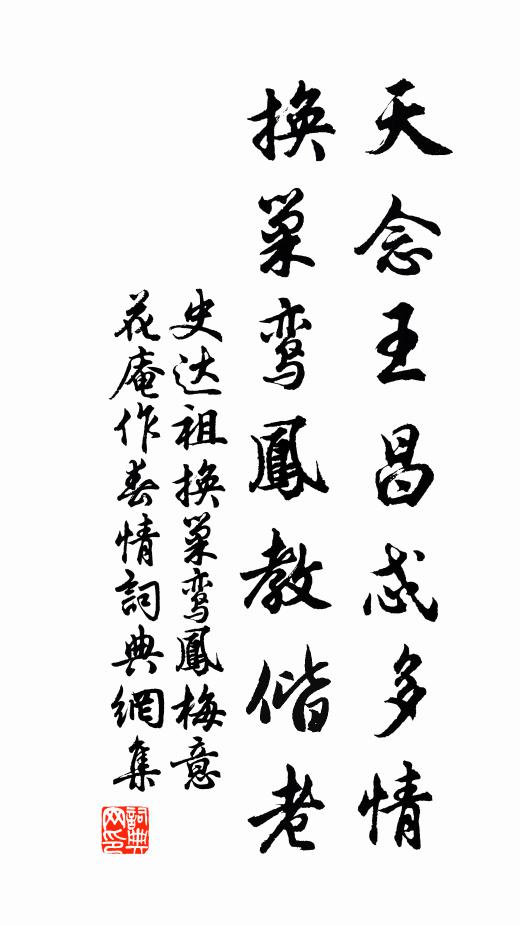 天念王昌忒多情
換巢鸾鳳教偕老
史达祖換巢鸾鳳梅意
花庵作春情詞典網集
詞典
网印